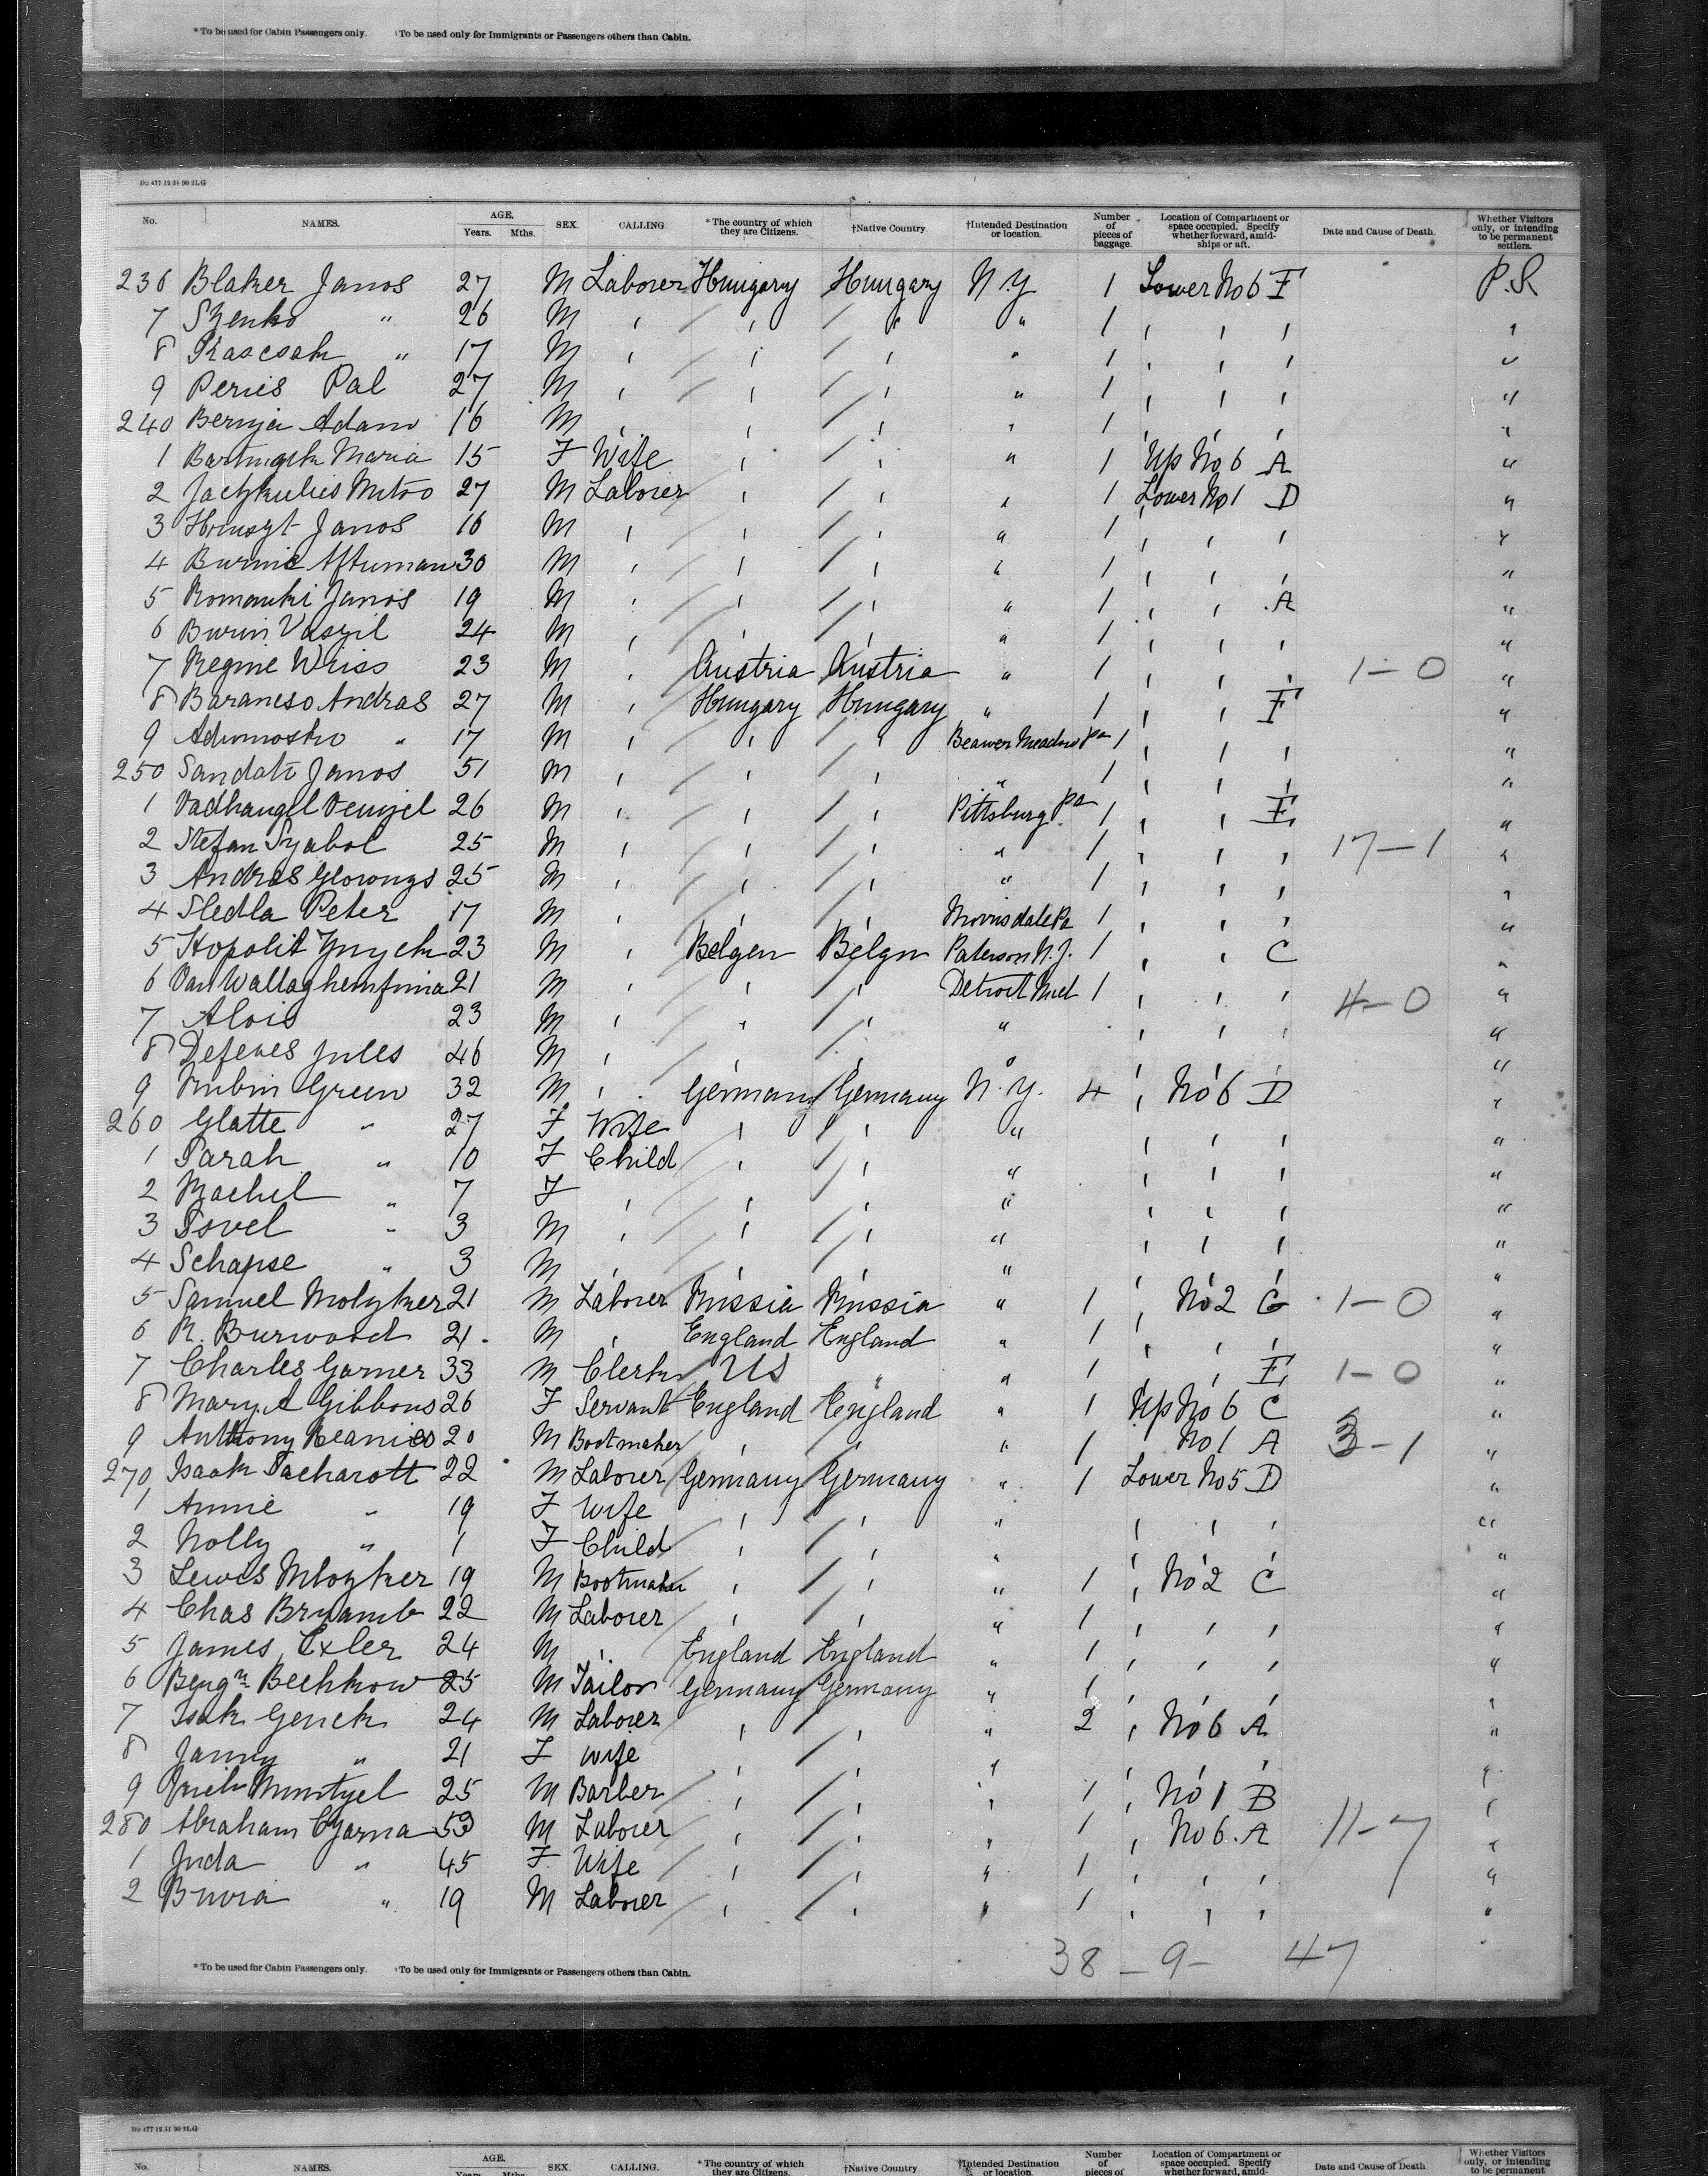 * To be used for Cabin Passengers only. † To be used only for Immigrants or Passengers others than Cabin.
Do 477 12 31 90 2LG
No. NAMES. AGE. Years. Mths. SEX. CALLING. * The country of which they are Citizens. †Native Country. †Intended Destination or location. Number of pieces of baggage. Location of Compartment or space occupied. Specify whether forward, amid-ships or aft. Date and Cause of Death. Whether Visitors only, or intending to be permanent settlers.
236 Blaker Janos 27 M Laborer Hungary Hungary N.Y 1 Lower No 6 F P.S.
7 Szenko " 26 M " " " " 1 " " " "
8 " 17 M " " " " 1 " " " "
9 Peries Pal 27 M " " " " 1 " " " "
240 Adam 16 M " " " " 1 " " " "
1 Maria 15 F Wife " " " 1 Up No 6 A "
2 27 M Laborer " " " 1 Lower No 1 D "
3 Janos 16 M " " " " 1 " " " "
4 30 M " " " " 1 " " " "
5 Janos 19 M " " " " 1 " " A "
6 Burin Vaszil 24 M " " " " 1 " " " "
7 Regine Weiss 23 M " Austria Austria " 1 " " " 1-0 "
8 Andras 27 M " Hungary Hungary " 1 " " F "
9 " 17 M " " " Beaver Meadow Pa 1 " " " "
250 Janos 51 M " " " " 1 " " " "
1 26 M " " " Pittsburg Pa 1 " " E "
2 Stefan 25 M " " " " 1 " " " 17-1 "
3 Andras 25 M " " " " 1 " " " "
4 Sledla Peter 17 M " " " Morrisdale Pa 1 " " " "
5 23 M " Belgen Belgn Paterson N.J. 1 " " C "
6 21 M " " " Detroit 1 " " " 4-0 "
7 Alois 23 M " " " " " " " "
8 Jules 46 M " " "
9 Rubin Green 32 M " Germany Germany N.Y. 4 " No 6 D "
260 Glatte " 27 F Wife " " " " " " "
1 Sarah " 10 F Child " " " " " " "
2 Rachel " 7 F " " " " " " " "
3 " 3 M " " " " " " " "
4 Schapse " 3 M " " " " " " " "
5 Samuel 21 M Laborer Russia Russia " 1 " No 2 G 1-0 "
6 R. Burwood 21 M " England England " 1 " " " "
7 Charles Garner 33 M Clerk US " " 1 " " E 1-0 "
8 Mary A Gibbons 26 F Servant England England " 1 Up No 6 C "
9 Anthony 20 M Bootmaker " " " 1 No 1 A 3-1 "
270 Isaak Sacharott 22 M Laborer Germany Germany " 1 Lower No 5 D "
1 Annie " 19 F Wife " " " " " " "
2 Nolly " 1 F Child " " " " " " "
3 Lewis 19 M Bootmaker " " " 1 " No 2 C "
4 Chas 22 M Laborer " " " 1 " " " "
5 James Exler 24 M " England England " 1 " " " "
6 25 M Tailor Germany Germany " 1 " " " "
7 Isak Genek 24 M Laborer " " " 2 " No 6 A "
8 Janny " 21 F Wife " " " " " " "
9 25 M Barber " " " 1 " No 1 B "
280 Abraham Czarna 53 M Laborer " " " 1 " No 6 A 11-7 "
1 Juda " 45 F Wife " " " 1 " " " "
2 " 19 M Laborer " " " 1 " " " "
38 - 9 - 47
* To be used for Cabin Passengers only. † To be used only for Immigrants or Passengers others than Cabin.
Do 477 12 31 90 2LG
No. NAMES. AGE. Years. Mths. SEX. CALLING. * The country of which they are Citizens. †Native Country. †Intended Destination or location. Number of pieces of Location of Compartment or space occupied. Specify whether forward, amid- Date and Cause of Death. Whether Visitors only, or intending to be permanent